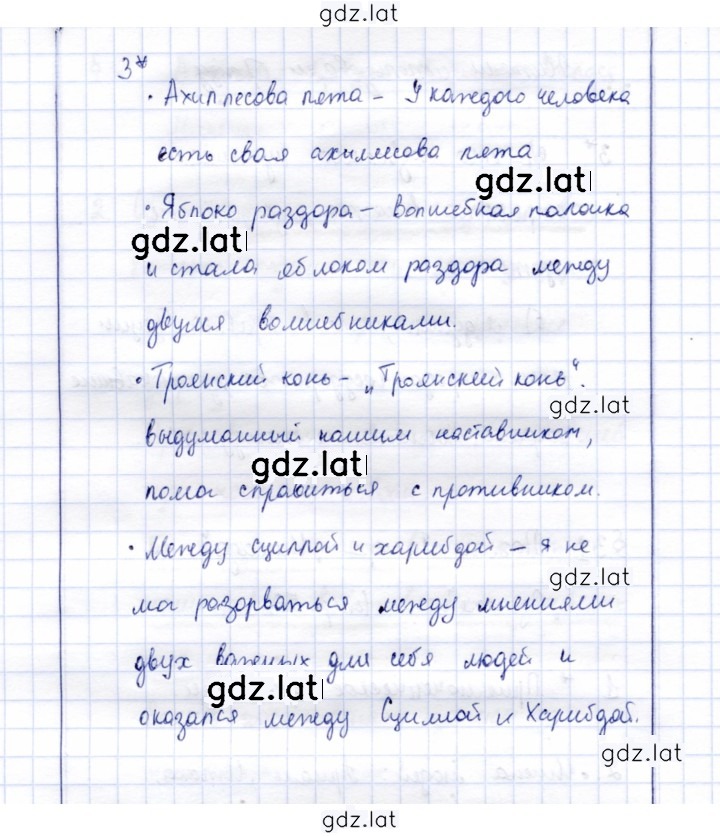 gdz.lat
3*
• Ахиллесова пята – У каждого человека
есть своя ахиллесова пята
gdz.lat
• Яблоко раздора – волшебная палочка
gdz.lat
и стала яблоком раздора между
двумя волшебниками.
• Троянский конь – „Троянский конь“.
gdz.lat
выдуманный нашим наставником,
gdz.lat
помог справиться с противником.
• Между сциллой и харибдой – я не
gdz.lat
мог разорваться между мнениями
двух важных для себя людей и
gdz.lat
оказался между Сциллой и Харибдой.
gdz.lat
gdz.lat